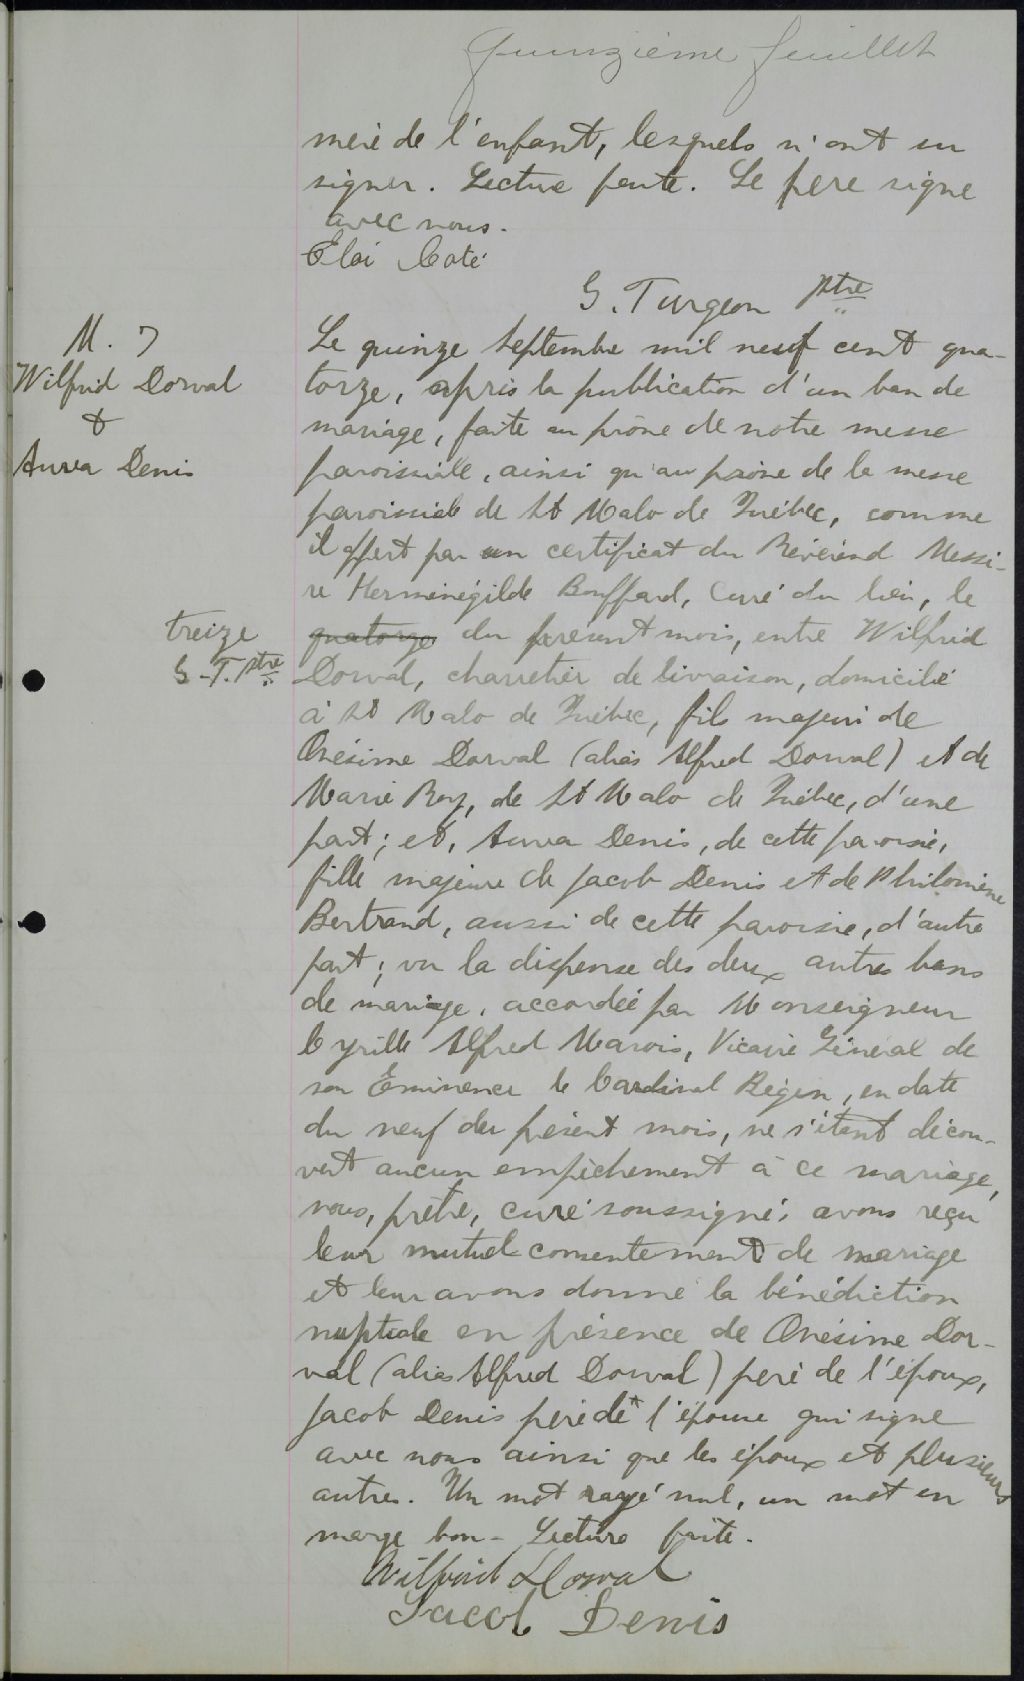 Quinzième feuillet
mère de l'enfant, lesquels n'ont su
signer. Lecture faite. Le père signe
avec nous.
Eloi Coté
G. Turgeon Ptre
M. 7
Wilfrid Dorval
&
Auvea Denis
Le quinze Septembre mil neuf cent qua-
torze, après la publication d'un ban de
mariage, faite au prône de notre messe
paroissiale, ainsi qu'au prône de la messe
paroissiale de St Malo de Québec, comme
il appert par un certificat du Révérend Messi-
re Herménégilde Bouffard, Curé du lieu, le
treize
G.T. Ptre
quatorze du présent mois, entre Wilfrid
Dorval, charretier de livraison, domicilié
à St Malo de Québec, fils majeur de
Onésime Dorval (alias Alfred Dorval) et de
Marie Roy, de St Malo de Québec, d'une
part; et, Auvea Denis, de cette paroisse,
fille majeure de Jacob Denis et de Philomène
Bertrand, aussi de cette paroisse, d'autre
part; vu la dispense des deux autres bans
de mariage, accordée par Monseigneur
Cyrille Alfred Marois, Vicaire Général de
son Eminence le Cardinal Bégin, en date
du neuf du présent mois, ne s'étant décou-
vert aucun empêchement à ce mariage,
nous, prêtre, curé soussigné, avons reçu
leur mutuel consentement de mariage
et leur avons donné la bénédiction
nuptiale en présence de Onésime Dor-
val (alias Alfred Dorval) père de l'époux,
Jacob Denis père de l'épouse qui signe
avec nous ainsi que les époux et plusieurs
autres. Un mot rayé nul, un mot en
marge bon - Lecture faite.
Wilfrid Dorval
Jacob Denis